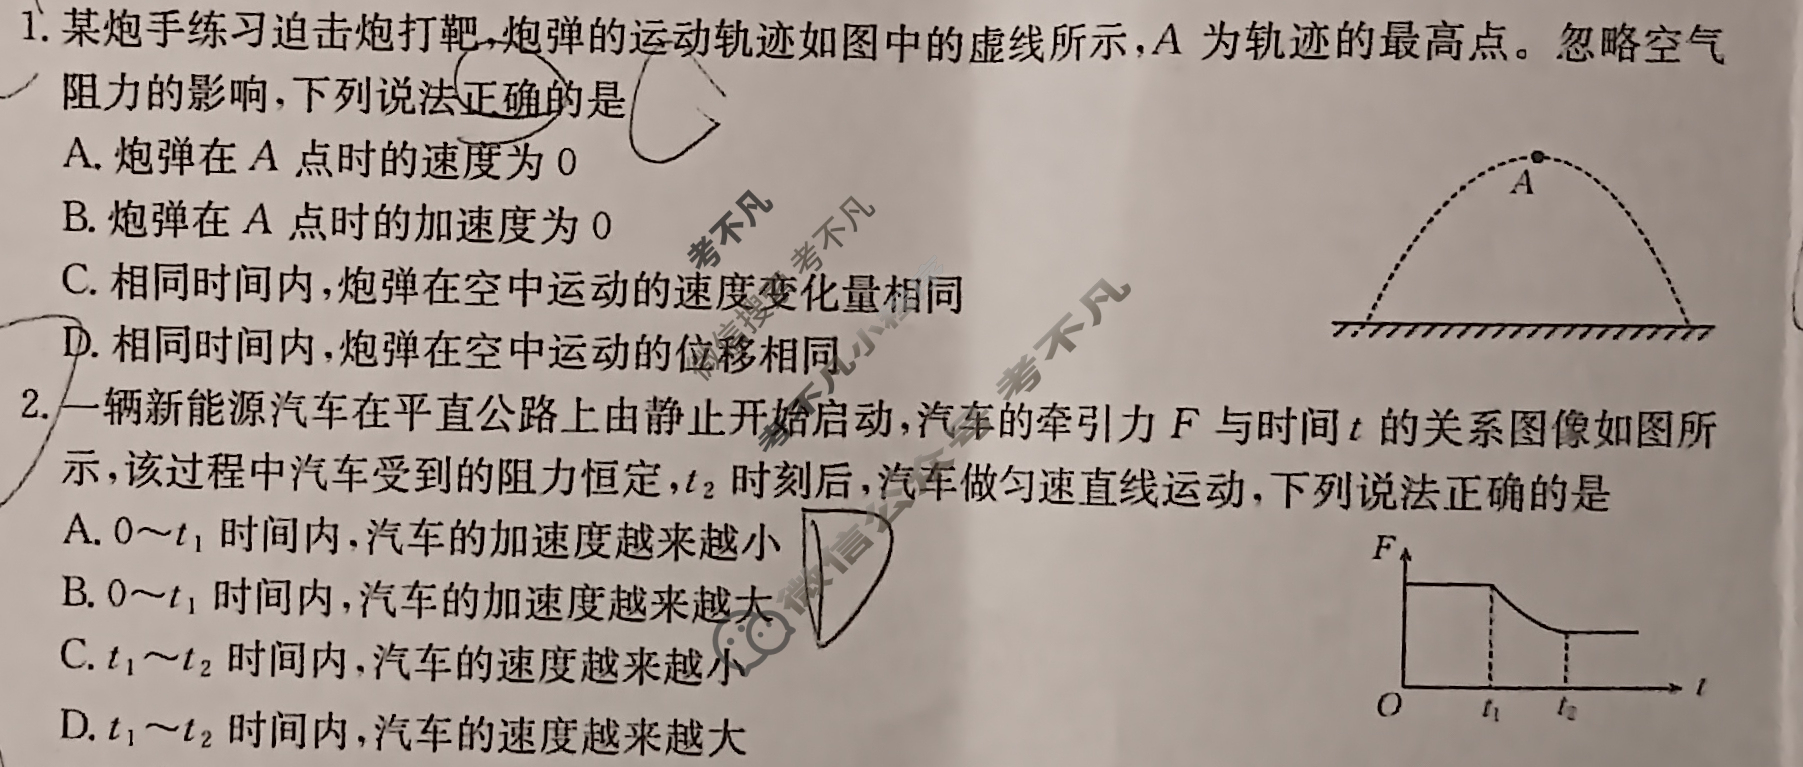 1. 某炮手练习迫击炮打靶,炮弹的运动轨迹如图中的虚线所示,A 为轨迹的最高点。忽略空气
阻力的影响,下列说法正确的是
A. 炮弹在 A 点时的速度为 0
B. 炮弹在 A 点时的加速度为 0
C. 相同时间内,炮弹在空中运动的速度变化量相同
D. 相同时间内,炮弹在空中运动的位移相同
A
考不凡
微信搜索考不凡
考不凡小程序
微信公众号 考不凡
2. 一辆新能源汽车在平直公路上由静止开始启动,汽车的牵引力 F 与时间 t 的关系图像如图所
示,该过程中汽车受到的阻力恒定,t₂ 时刻后,汽车做匀速直线运动,下列说法正确的是
A. 0～t₁ 时间内,汽车的加速度越来越小
B. 0～t₁ 时间内,汽车的加速度越来越大
C. t₁～t₂ 时间内,汽车的速度越来越小
D. t₁～t₂ 时间内,汽车的速度越来越大
D
F
O t₁ t₂ t